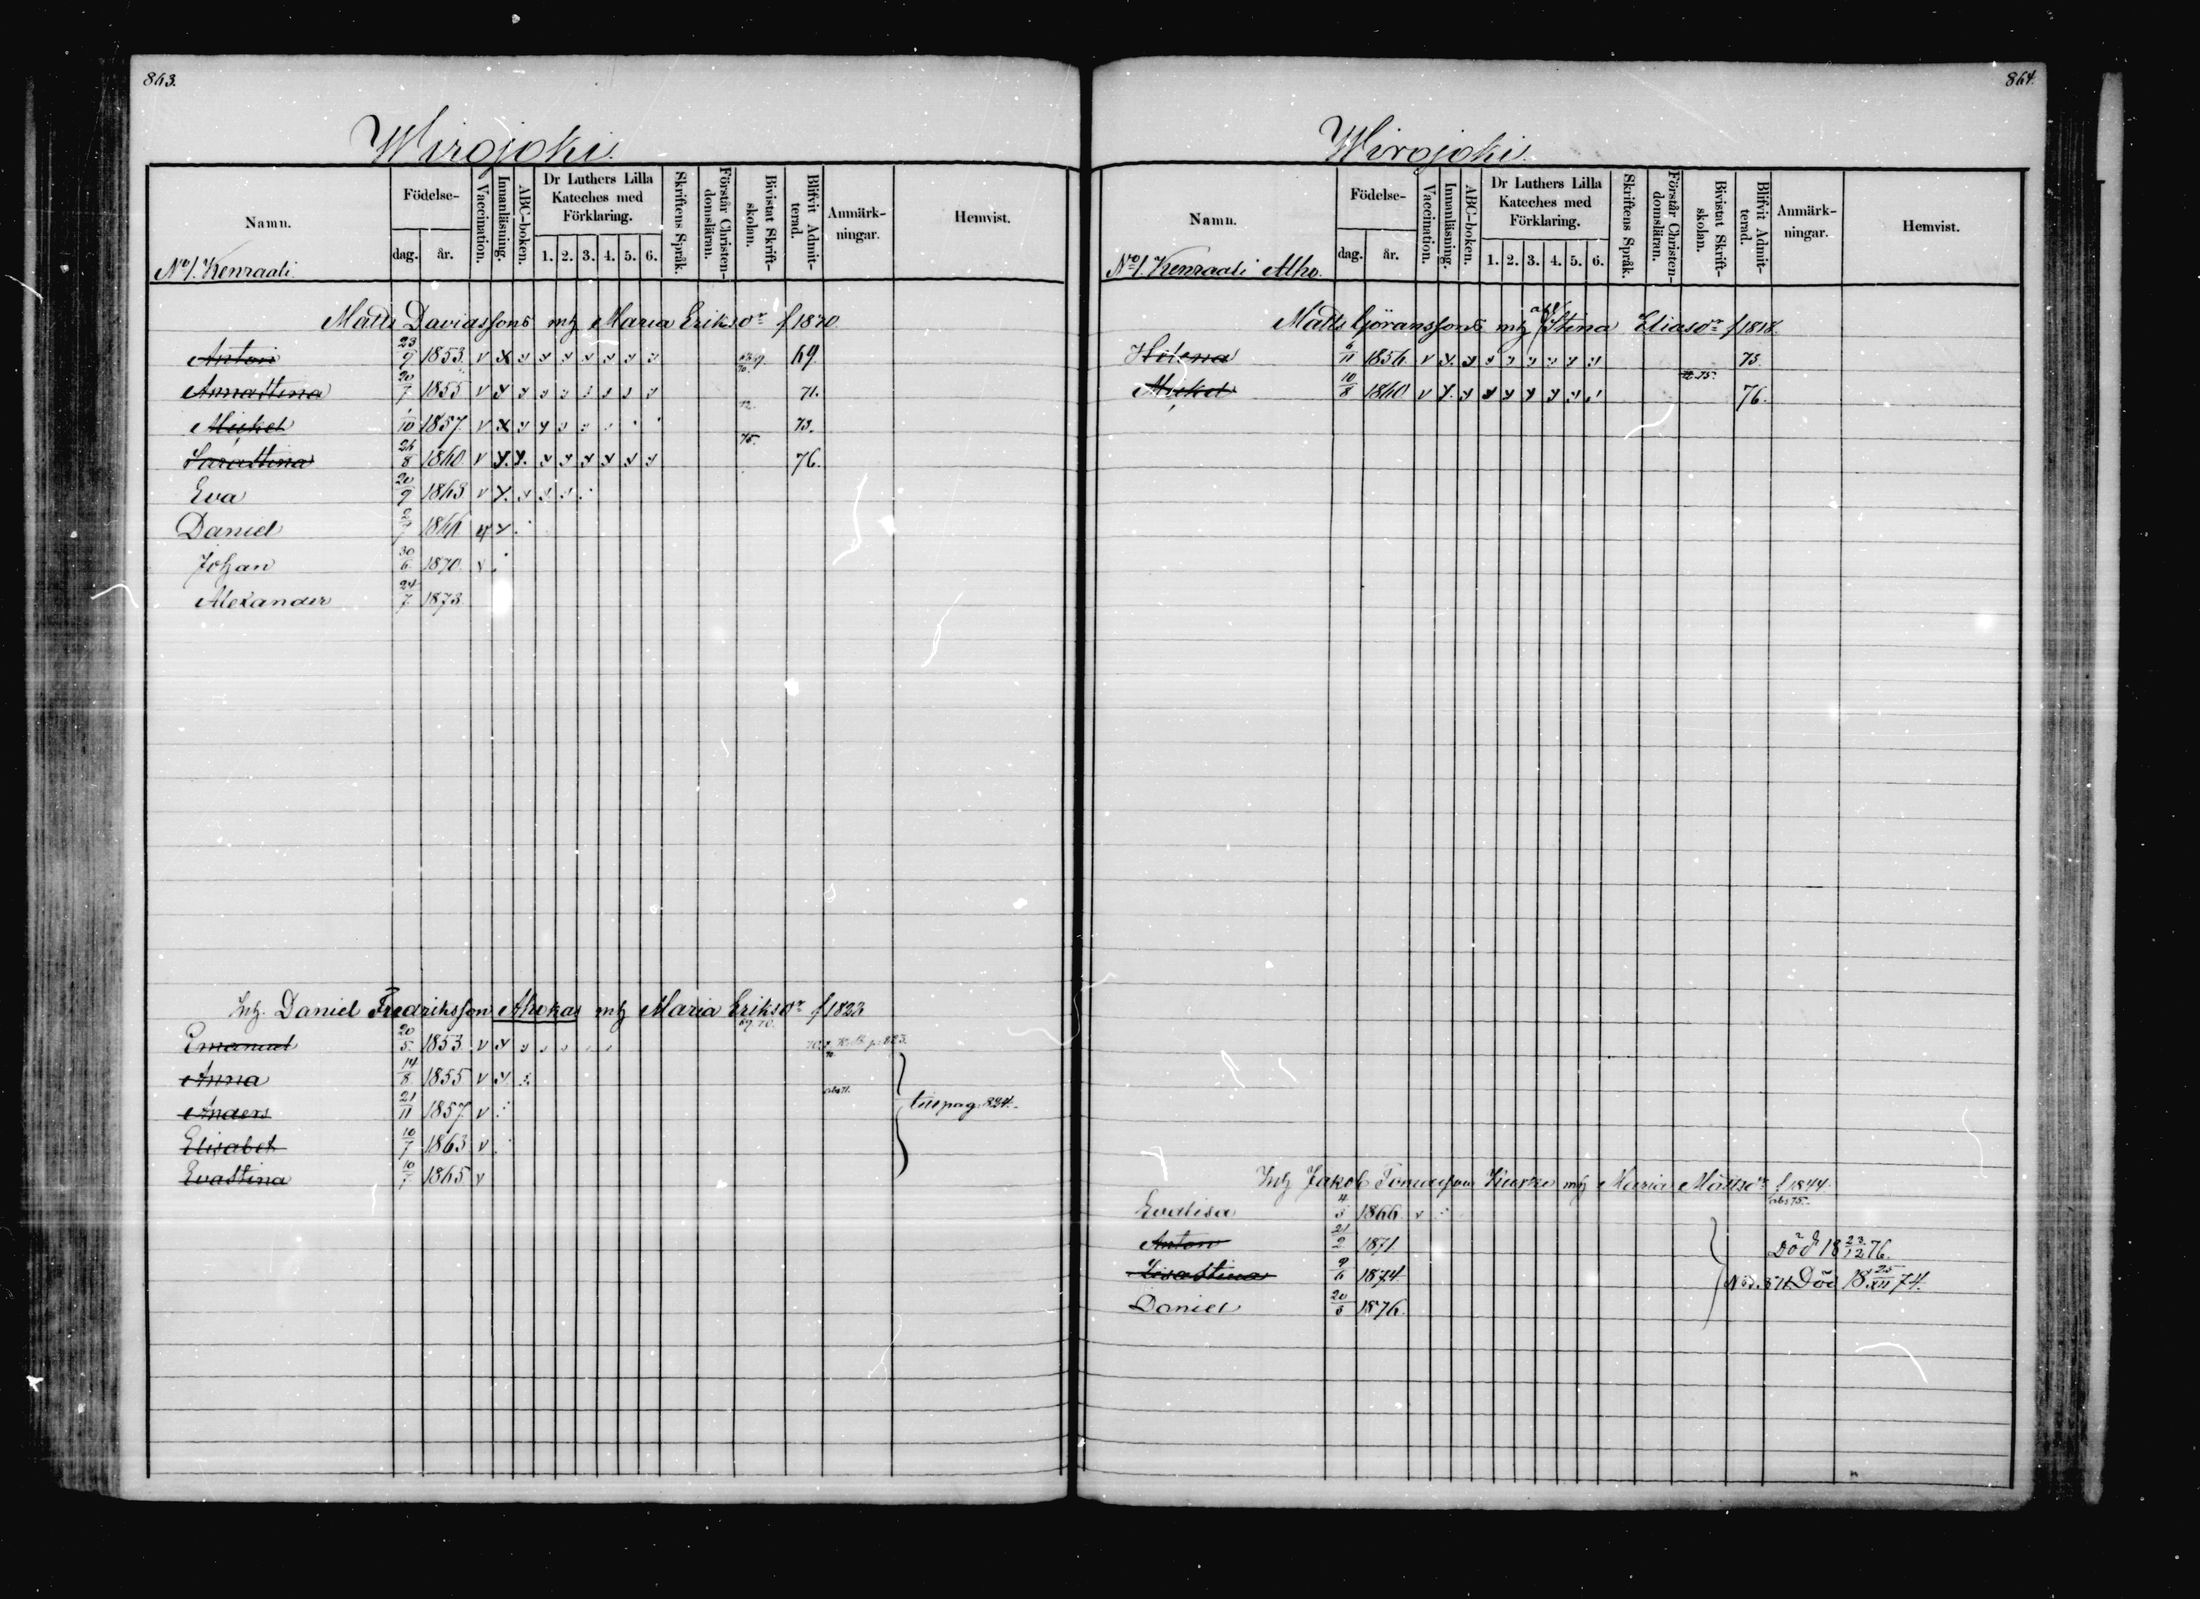 863.
Wirojoki.
Namn.
Födelse-
dag.
år.
Vaccination.
Innanläsning.
ABC-boken.
Dr Luthers Lilla
Kateches med
Förklaring.
1. 2. 3. 4. 5. 6.
Skriftens Språk.
Förstår Christen-
domsläran.
Bivistat Skrift-
skolan.
Blifvit Admit-
terad.
Anmärk-
ningar.
Hemvist.
No 1. Kenraali
Matts Davidssons mh Maria Eriksdr f 1830
Anton 23/9 1853 v x y y y y y y y 69.
Annastina 20/7 1855 v y y 71.
Mickel 1/10 1857 v x y y 72. 73.
Sarastina 26/8 1860 v y. y. y y y y y y 75. 76.
Eva 20/9 1863 v y. y
Daniel 2/7 1866 y
Johan 30/6 1870 v
Alexander 24/7 1873
Inh. Daniel Fredriksson Ahokas mh Maria Eriksdr f 1823
69. 70.
Emanuel 20/5 1853 v y y p. 823.
Anna 14/8 1855 v y.
Anders 21/11 1857 v till pag. 824.
Elisabet 10/7 1863 v
Evastina 10/7 1865 v
864.
Wirojoki.
Namn.
Födelse-
dag.
år.
Vaccination.
Innanläsning.
ABC-boken.
Dr Luthers Lilla
Kateches med
Förklaring.
1. 2. 3. 4. 5. 6.
Skriftens Språk.
Förstår Christen-
domsläran.
Bivistat Skrift-
skolan.
Blifvit Admit-
terad.
Anmärk-
ningar.
Hemvist.
No 1. Kenraali Alho.
Matts Göranssons mh Stina Eliasdr f 1818.
Helena 6/11 1856 v y. y y y y y y y 73.
Mickel 10/8 1860 v y. y y y y y y 75. 76.
Inh Jakob Tomasson mh Maria Mattsdr f 1844.
Evalisa 4/5 1866 v
Anton 21/2 1871 Död 18 23/12 76.
Lisastina 9/6 1874 Död 18 25/XII 74.
Daniel 20/3 1876.